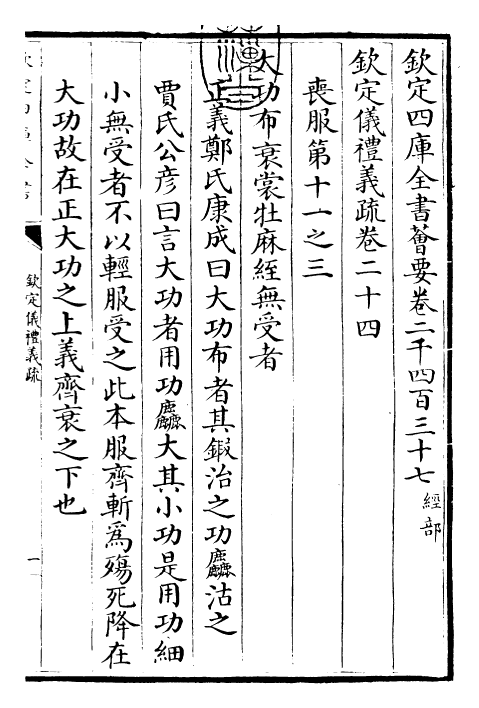 欽定四庫全書薈要卷二千四百三十七 經部
欽定儀禮義疏卷二十四
喪服第十一之三
大功布衰裳牡麻絰無受者
正義鄭氏康成曰大功布者其鍛治之功麤沽之
賈氏公彥曰言大功者用功麤大其小功是用功細
小無受者不以輕服受之此本服齊斬為殤死降在
大功故在正大功之上義齊衰之下也
欽定儀禮義疏
一